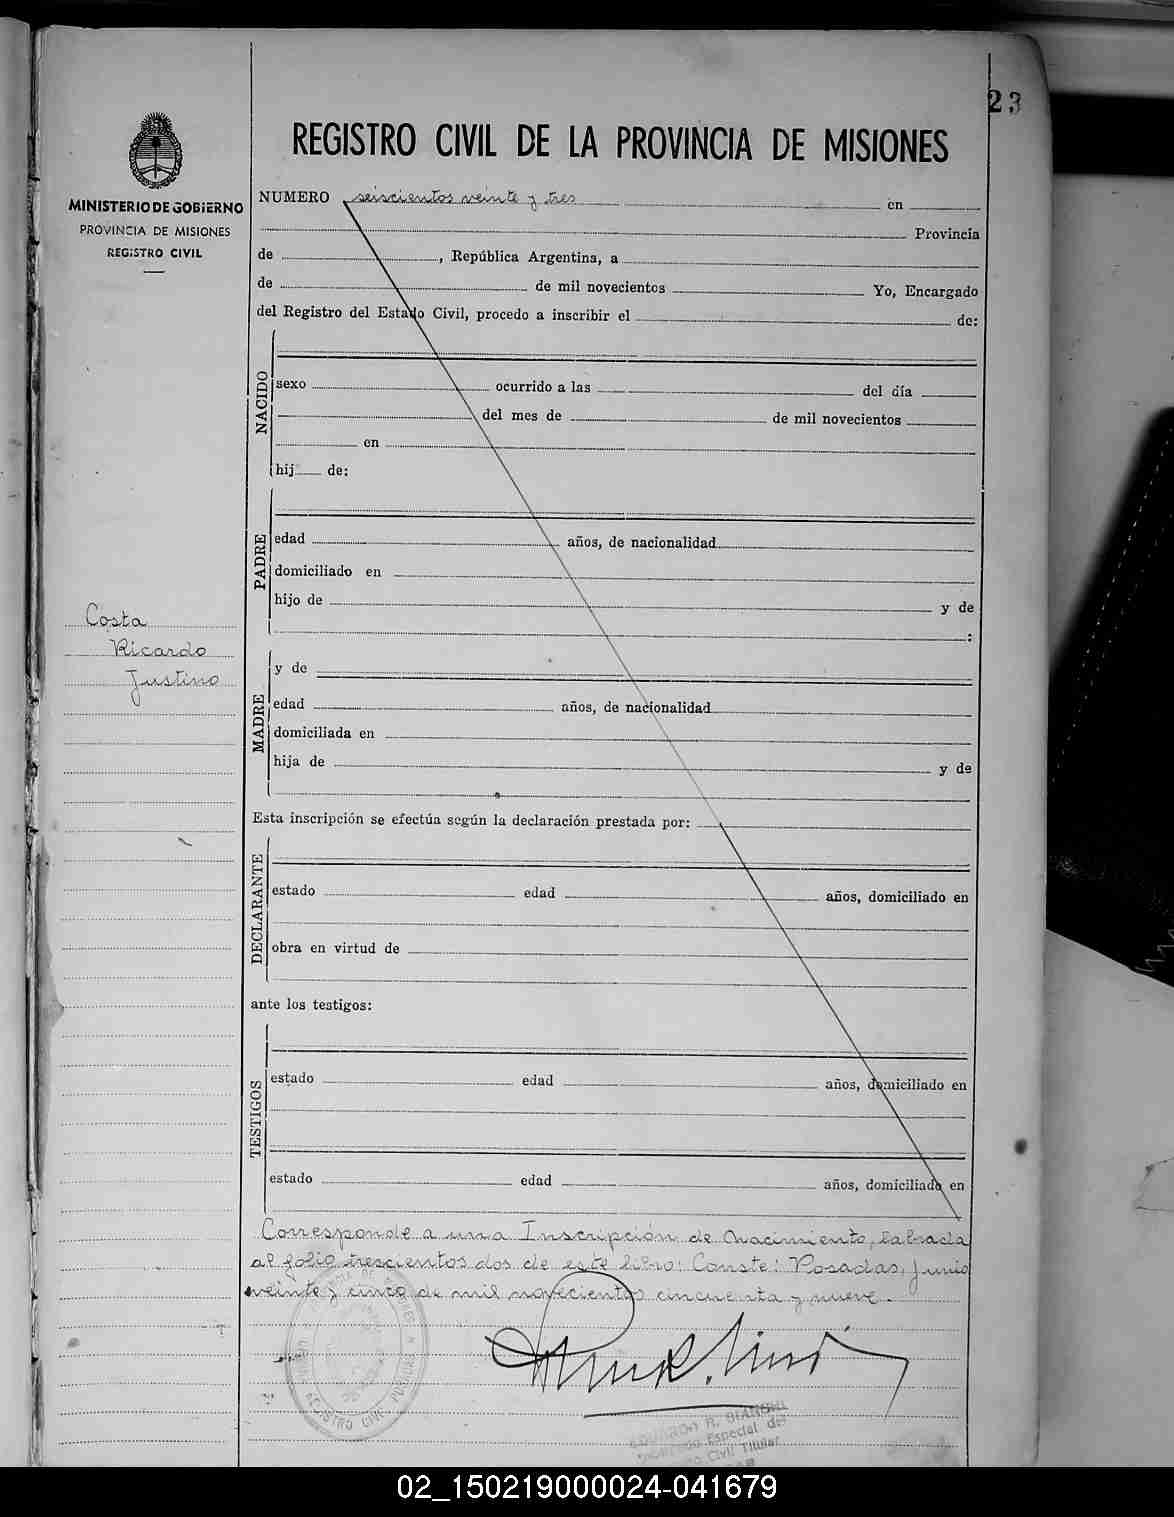 23
REGISTRO CIVIL DE LA PROVINCIA DE MISIONES
MINISTERIO DE GOBIERNO
PROVINCIA DE MISIONES
REGISTRO CIVIL
NUMERO seiscientos veinte y tres en
Provincia
de , República Argentina, a
de de mil novecientos Yo, Encargado
del Registro del Estado Civil, procedo a inscribir el de:
NACIDO
sexo ocurrido a las del día
del mes de de mil novecientos
en
hij de:
PADRE
edad años, de nacionalidad
domiciliado en
hijo de y de
:
Costa
Ricardo
Justino
MADRE
y de
edad años, de nacionalidad
domiciliada en
hija de y de
Esta inscripción se efectúa según la declaración prestada por:
DECLARANTE
estado edad años, domiciliado en
obra en virtud de
ante los testigos:
TESTIGOS
estado edad años, domiciliado en
estado edad años, domiciliado en
Corresponde a una Inscripción de Nacimiento, labrada
al folio trescientos dos de este libro: Conste: Posadas, Junio
veinte y cinco de mil novecientos cincuenta y nueve.-
EDUARDO R.
Especial del
Civil Titular
02_150219000024-041679